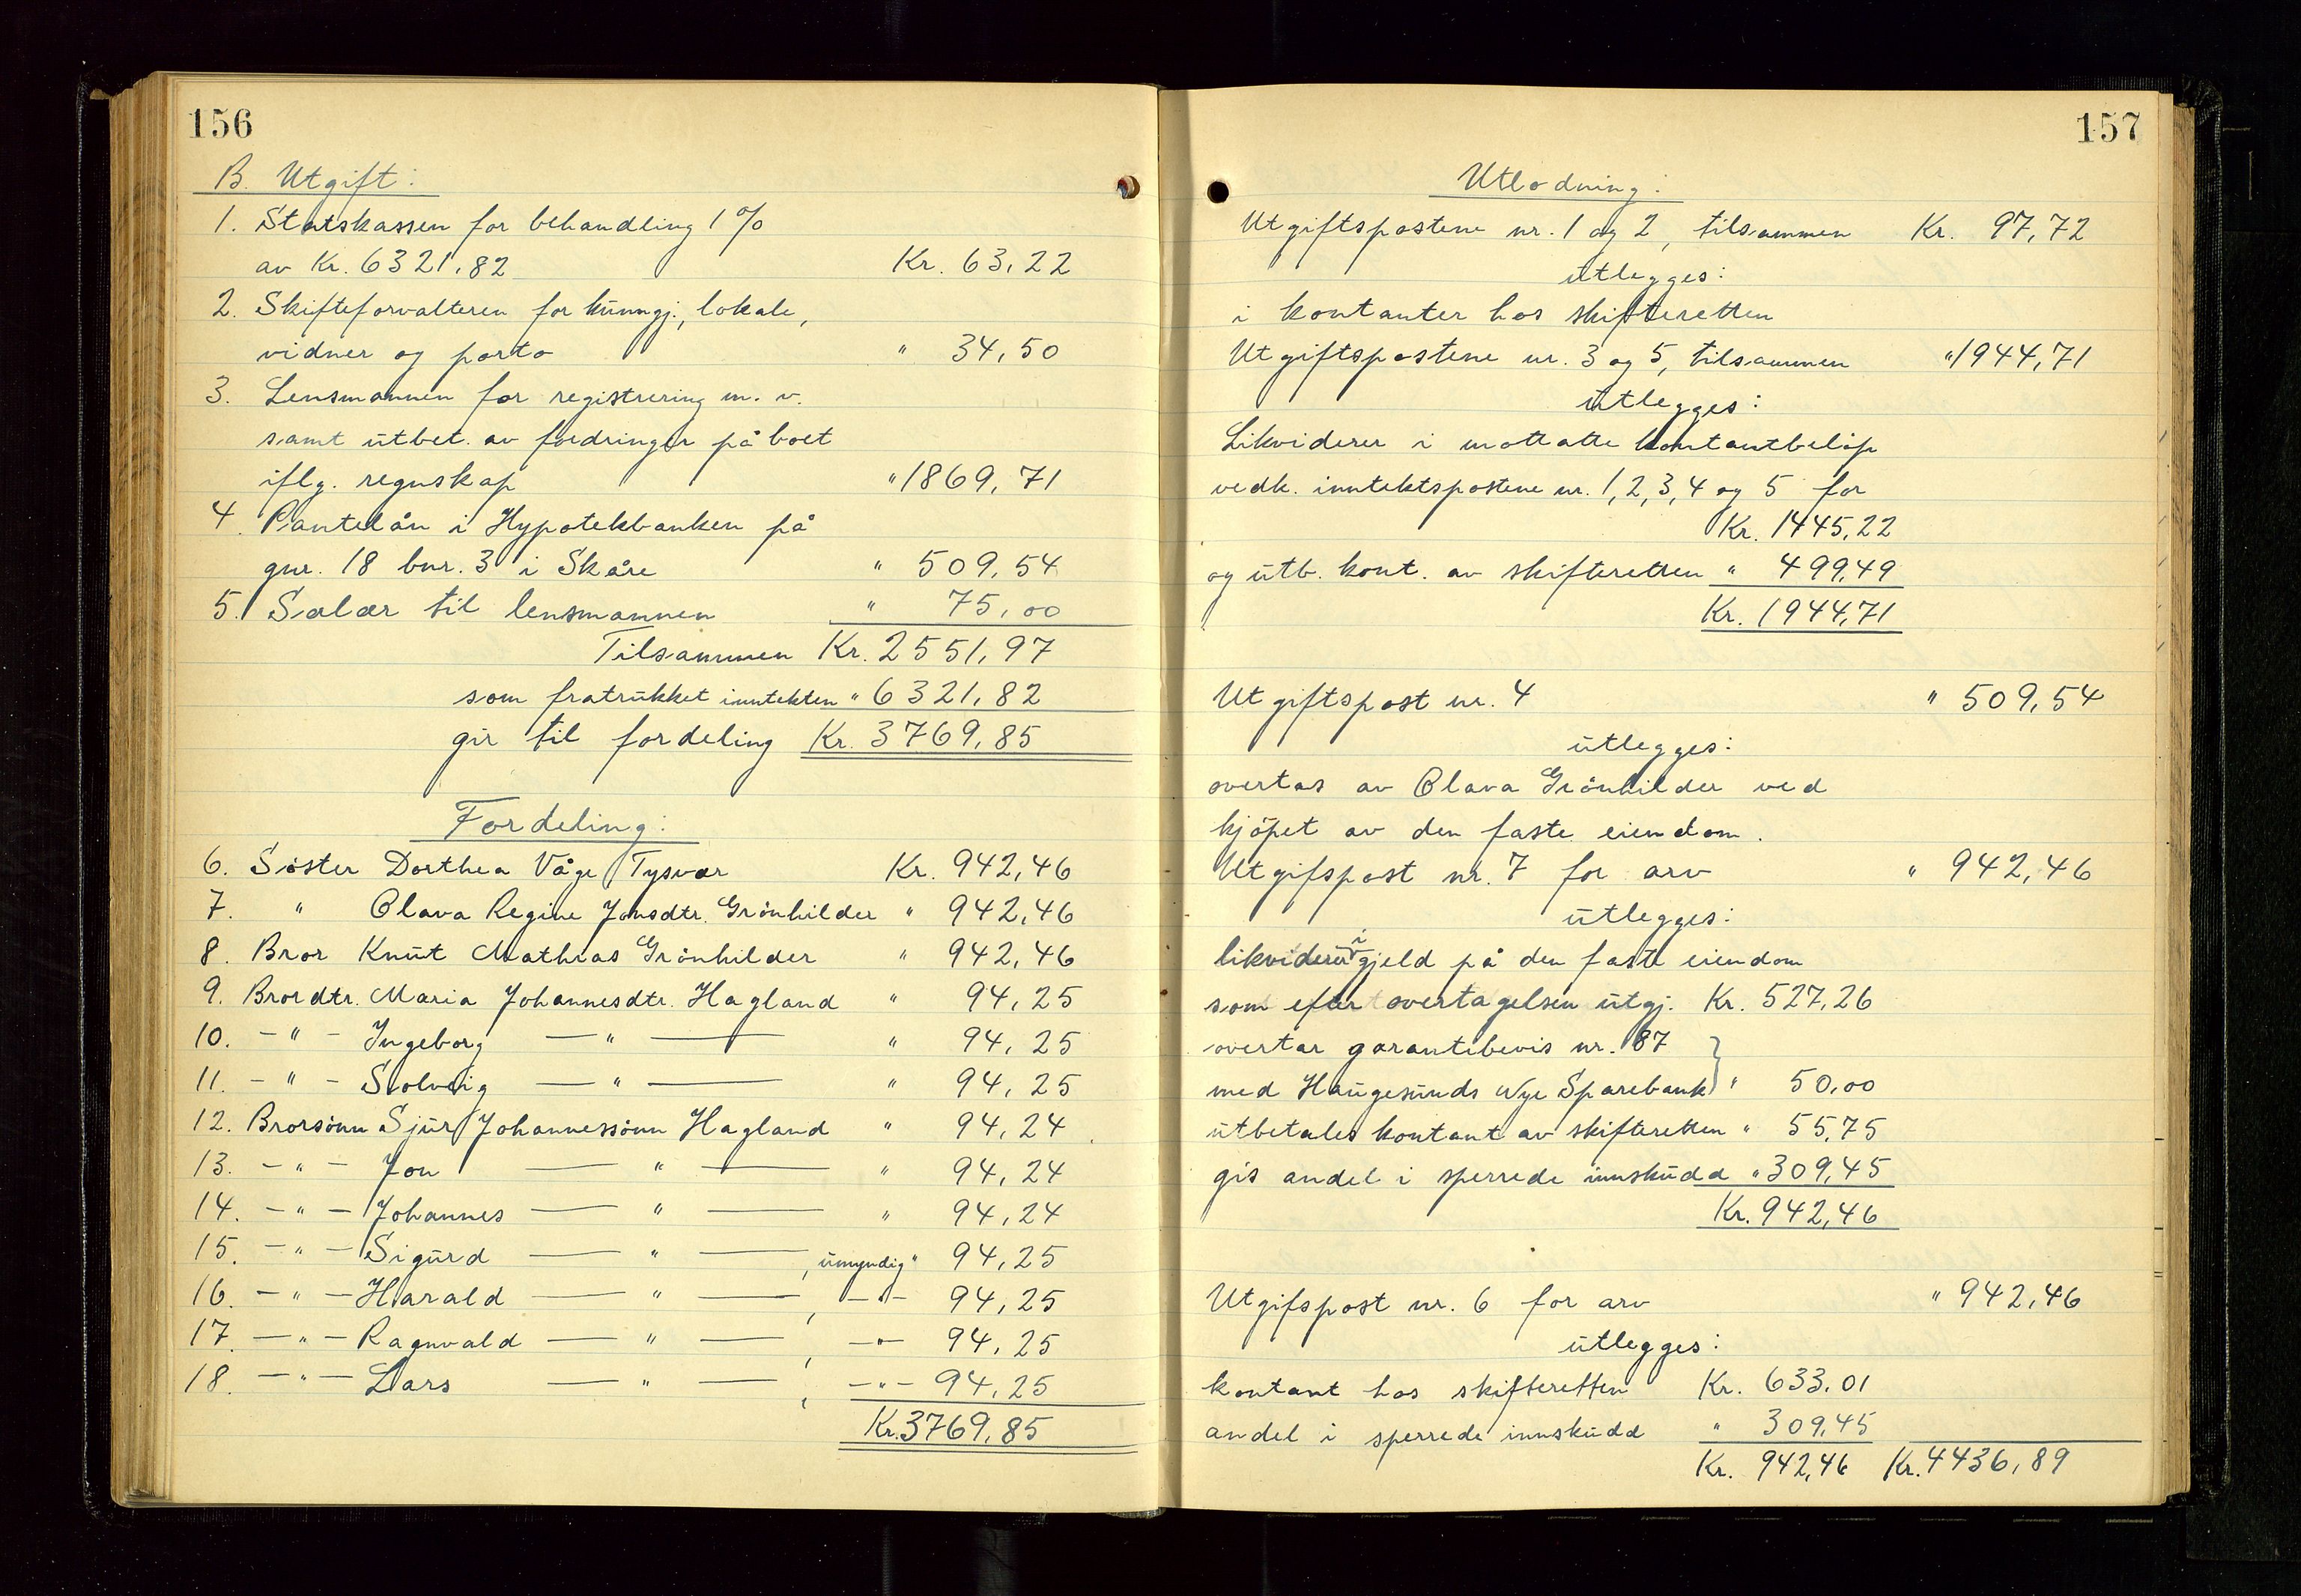 156
B. Utgift:
1. Statskassen for behandling 1 %
av Kr. 6321,82 Kr. 63,22
2. Skifteforvalteren for kunngj., lokale,
vidner og porto " 34,50
3. Lensmannen for registrering m. v.
samt utbet. av fordringer på boet
iflg. regnskap " 1869,71
4. Pantelån i Hypotekbanken på
gnr. 18 bnr. 3 i Skåre " 509,54
5. Salær til lensmannen " 75,00
Tilsammen Kr. 2551,97
som fratrukket inntekten " 6321,82
gir til fordeling Kr. 3769,85
Fordeling:
6. Søster Dorthea Våge Tysvær Kr. 942,46
7. " Olava Regine Jonsdtr. Grönhilder " 942,46
8. Bror Knut Mathias Grönhilder " 942,46
9. Brordtr. Maria Johannesdtr. Hagland " 94,25
10. - " - Ingeborg — " — " 94,25
11. - " - Solveig — " — " 94,25
12. Brorsønn Sjur Johannessønn Hagland " 94,24
13. - " - Jon — " — " 94,24
14. - " - Johannes — " — " 94,24
15. - " - Sigurd — " — , umyndig " 94,25
16. - " - Harald — " — , - " - 94,25
17. - " - Ragnvald — " — , - " - 94,25
18. - " - Lars — " — , - " - 94,25
Kr. 3769,85
157
Utlodning:
Utgiftspostene nr. 1 og 2, tilsammen Kr. 97,72
utlegges:
i kontanter hos skifteretten
Utgiftspostene nr. 3 og 5, tilsammen " 1944,71
utlegges:
Likviderer i mottatte kontantbeløp
vedk. inntektspostene nr. 1, 2, 3, 4 og 5 for
Kr. 1445,22
og utb. kont. av skifteretten " 499,49
Kr. 1944,71
Utgiftspost nr. 4 " 509,54
utlegges:
overtas av Olava Grönhilder ved
kjöpet av den faste eiendom.
Utgifspost nr. 7 for arv " 942,46
utlegges:
likviderer i gjeld på den faste eiendom
som efter overtagelsen utgj. Kr. 527,26
overtar garantibevis nr. 87
med Haugesunds Nye Sparebank } " 50,00
utbetales kontant av skifteretten " 55,75
gis andel i sperrede innskudd " 309,45
Kr. 942,46
Utgifspost nr. 6 for arv " 942,46
utlegges:
kontant hos skifteretten Kr. 633,01
andel i sperrede innskudd " 309,45
Kr. 942,46 Kr. 4436,89